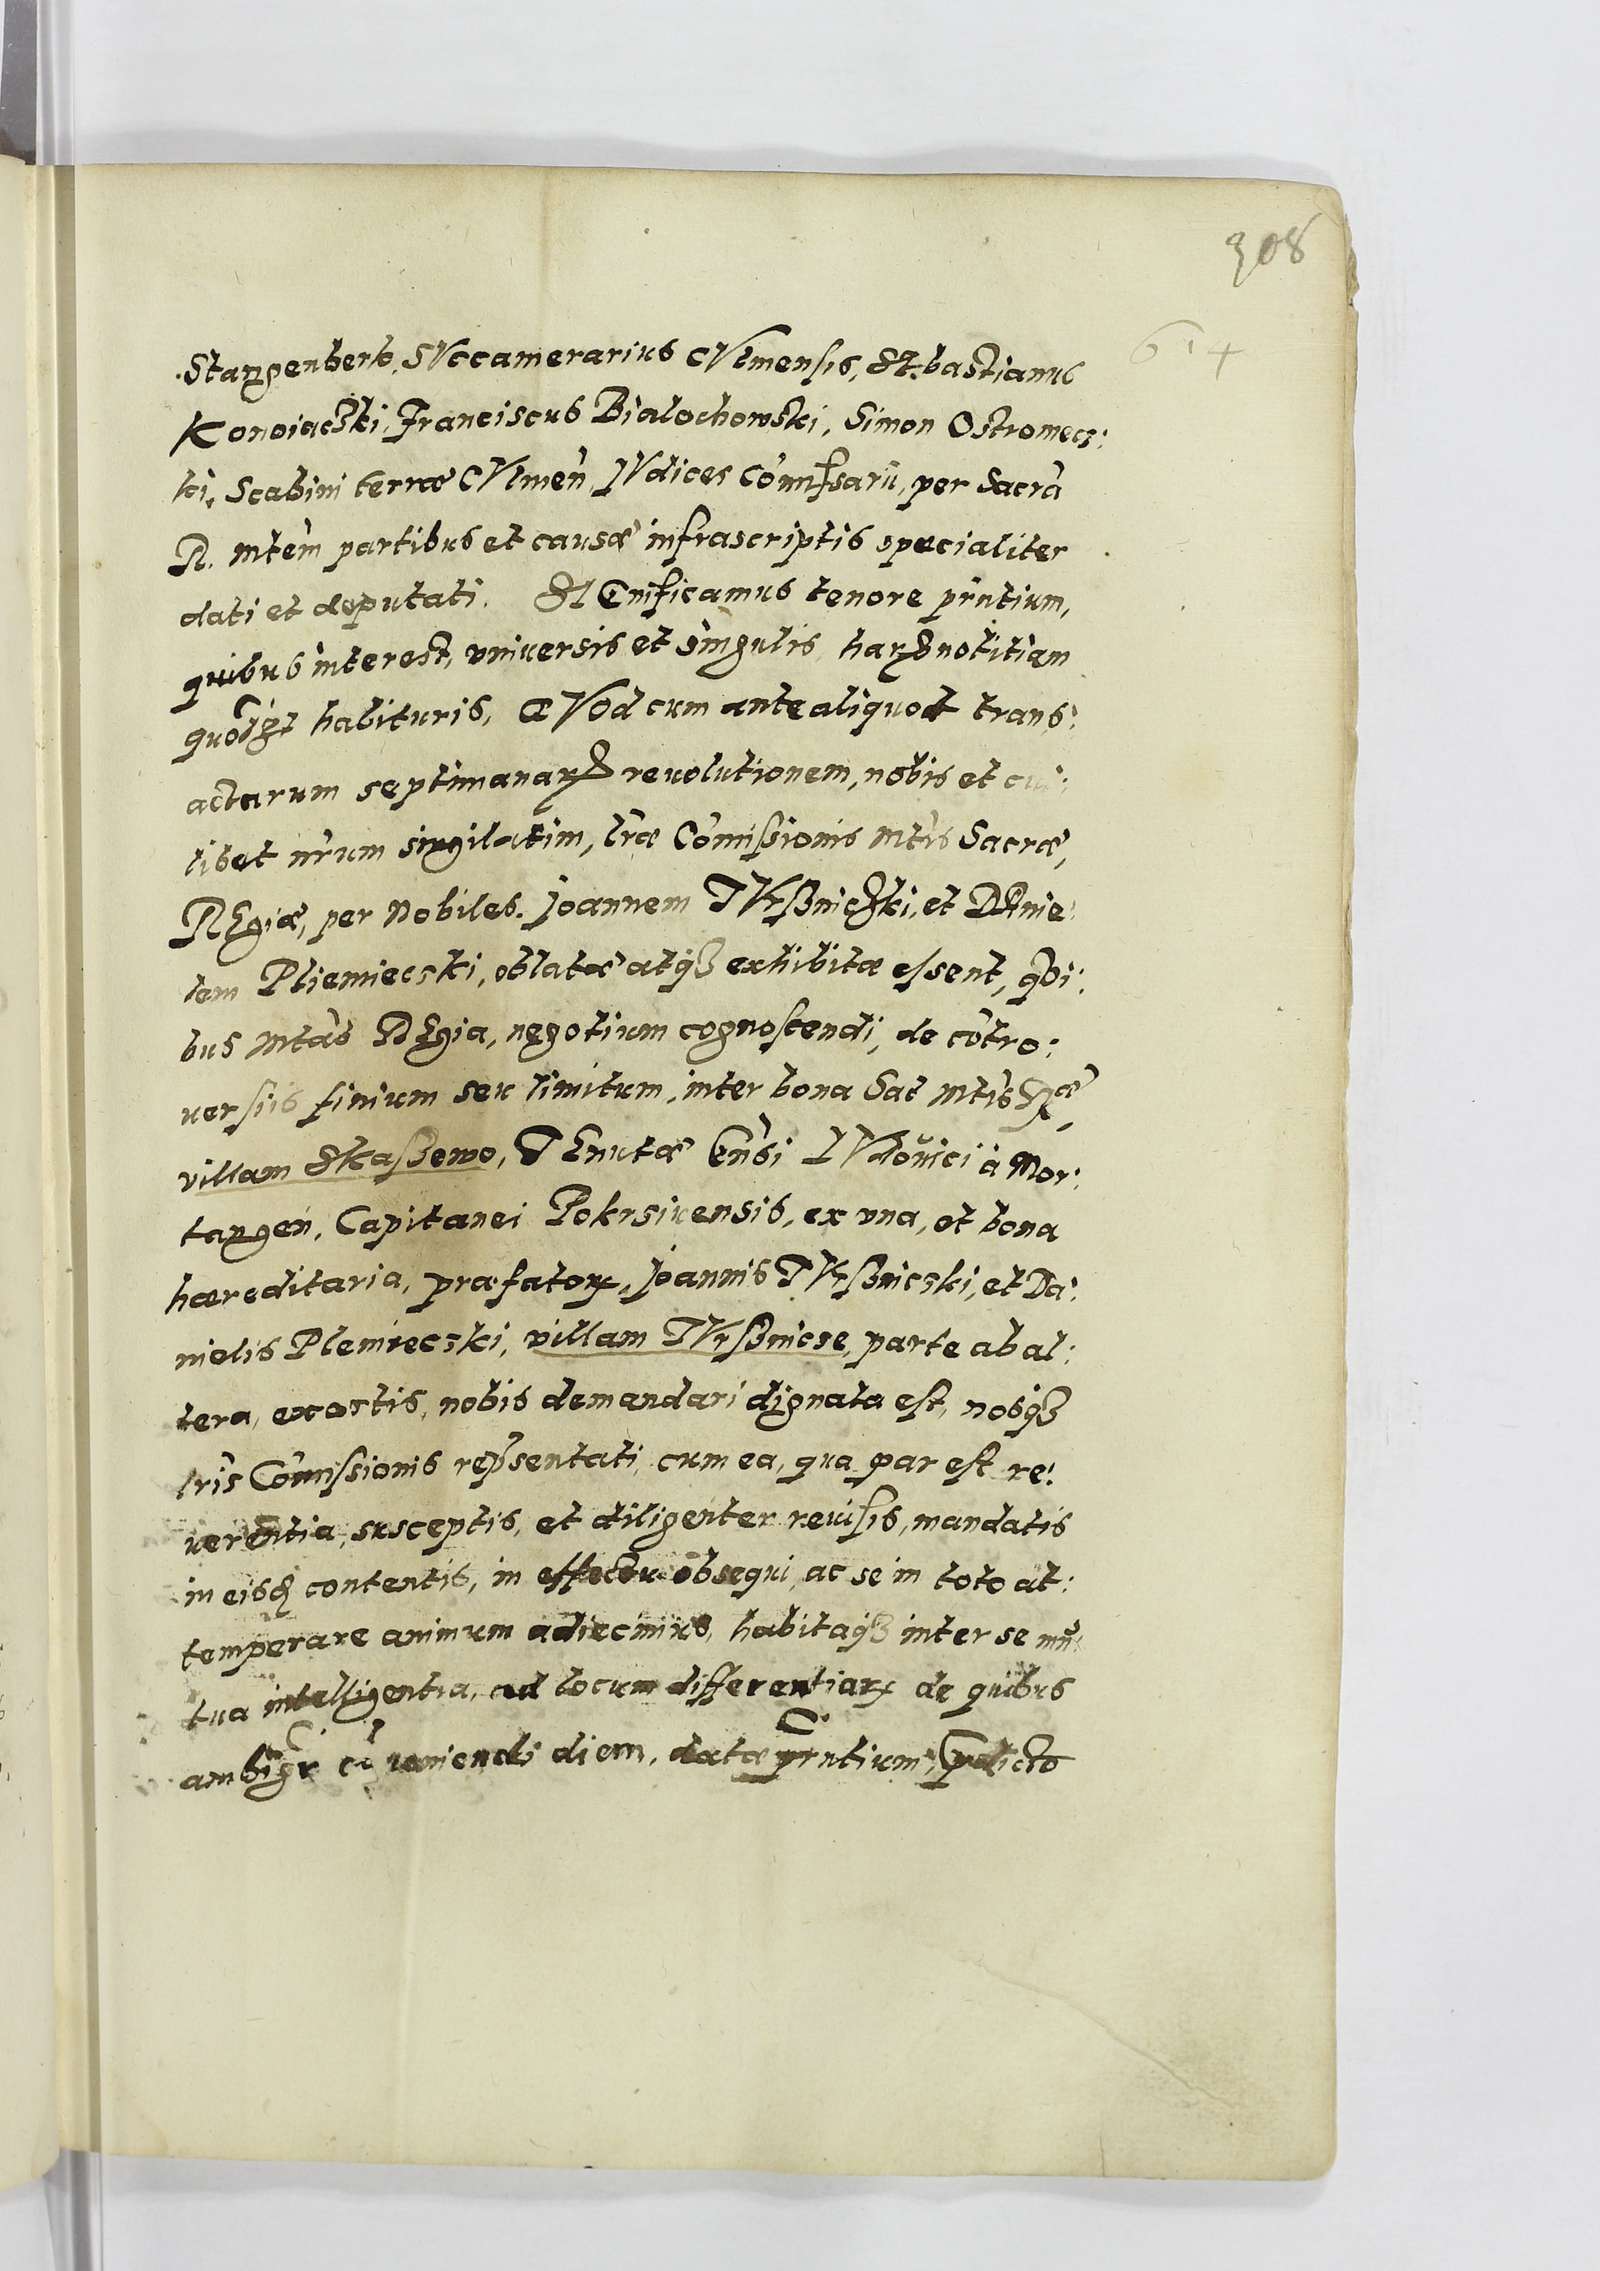 308
614
Stangenberk, SVccamerarius CVlmensis, SEbastianus
Konoiaczki, Franciscus Bialochowski, Simon Ostromecz:
ki, Scabini terræ CVlmeñ, IVdices Cõmissarii, per Sacrã
R. Mtem partibus et causæ infrascriptis specialiter
dati et deputati. SIGnificamus tenore pñtium,
quibus interest, vniuersis et singulis, harũ notitiam
quolz habituris, QVod cum ante aliquot trans:
actarum septimanarũ reuolutionem, nobis et cui:
libet nrũm singilatim, lræ Cõmissionis Mtis Sacræ,
REgiæ, per Nobiles. Joannem TVrßniczki, et DAnie:
lem Pliemieczki, oblatæ atqʒ exhibitæ essent, qui:
bus Mtas REgia, negotium cognoscendi, de cõtro:
uersiis finium seu limitum, inter bona Sac Mtis Ræ,
villam SkaSsewo, TEnutæ Gñsi LVdouici à Mor:
tangen, Capitanei Pokrsiuensis, ex vna, et bona
hæreditaria, præfatorꝝ, Joannis TVrßniczki, et Da:
nielis Plemieczki, villam TVrßnicze, parte ab al:
tera, exortis, nobis demandari dignata est, nosqʒ
lris Cõmissionis repsentati, cum ea, qua par est re:
uerentia, susceptis, et diligenter reuisis, mandatis
in eisdem contentis, in effectu obsequi, ac se in toto at:
temperare animum adiecimus, habitaqʒ inter se mu:
tua intelligentia, ad locum differentiarꝝ de quibus
ambigr̃ cõueniendi diem, datæ pñtium, pdicto